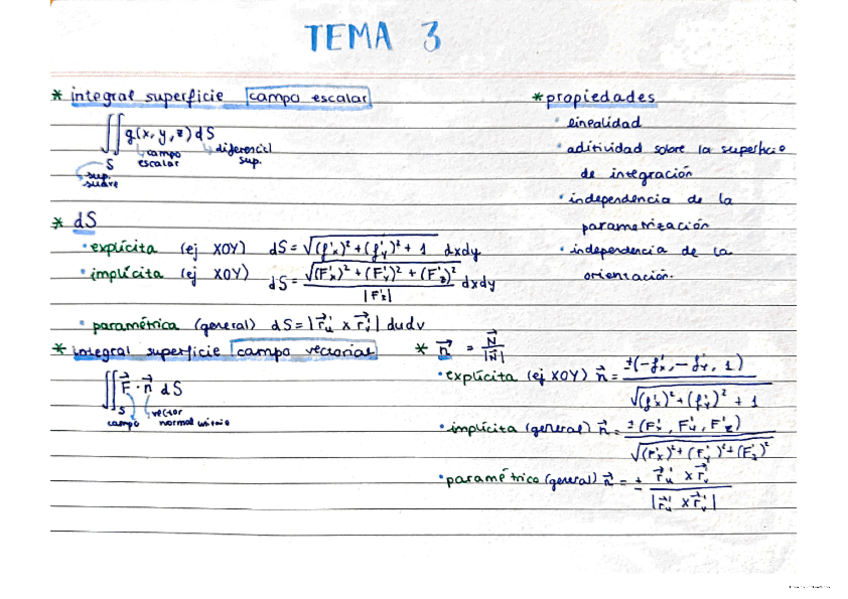 TEMA 3
* integral superficie campo escalar
∬ g(x,y,z) dS
S
campo escalar
diferencial sup.
sup. suave
* propiedades
· linealidad
· aditividad sobre la superficie
de integración
· independencia de la
parametrización
· independencia de la
orientación.
* dS
· explícita (ej XOY) dS = √((f'x)² + (f'y)² + 1) dxdy
· implícita (ej XOY) dS = √((F'x)² + (F'y)² + (F'z)²) / |F'z| dxdy
· paramétrica (general) dS = |r⃗'u × r⃗'v| dudv
* integral superficie campo vectorial
∬ F⃗ · n⃗ dS
S
campo
vector normal unitario
* n⃗ = N⃗ / |N⃗|
· explícita (ej XOY) n⃗ = ±(-f'x, -f'y, 1) / √((f'x)² + (f'y)² + 1)
· implícita (general) n⃗ = ±(F'x, F'y, F'z) / √((F'x)² + (F'y)² + (F'z)²)
· paramétrica (general) n⃗ = ± r⃗'u × r⃗'v / |r⃗'u × r⃗'v|